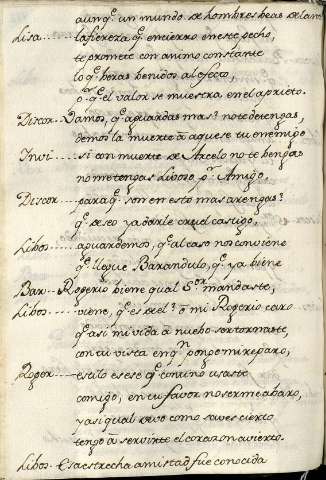 aunq̃. un mundo de hombres beas delante
Lisa.... la fiereza q̃. encierro en este pecho,
te promete con animo constante
lo q̃. heras benidos al efecto,
q̃. el valor se muestra en el aprieto.
Discor... Vamos, q̃. aguardas mas? no te detengas,
demosla muerte à aquese tu enemigo
Invi.... si con muerte de Arcelo no te bengas
no me tengas Liboso, pr. Amigo,
Discor.... para q̃. son en esto mas arengas?
q̃. deseo ya darle cruel castigo,
Libos... aguardemos, q̃. al caso nos conviene
q̃. llegue Barandulo, q̃. ya biene
Bar... Rogerio biene qual Sor. mandaste,
Libos.... viene, q̃. es de el? o mi Rogerio caro
q̃. asi mi vida à nuebo ser tornaste,
con tu vista en qn. pongo mi reparo,
Roger.... estilo es ese q̃. contino usaste
comigo, en tu favor no serme abaro,
y asi qual devo como deves cierto
tengo à servirte el corazon avierto.
Libos. Esa estrecha amistad fue conocida